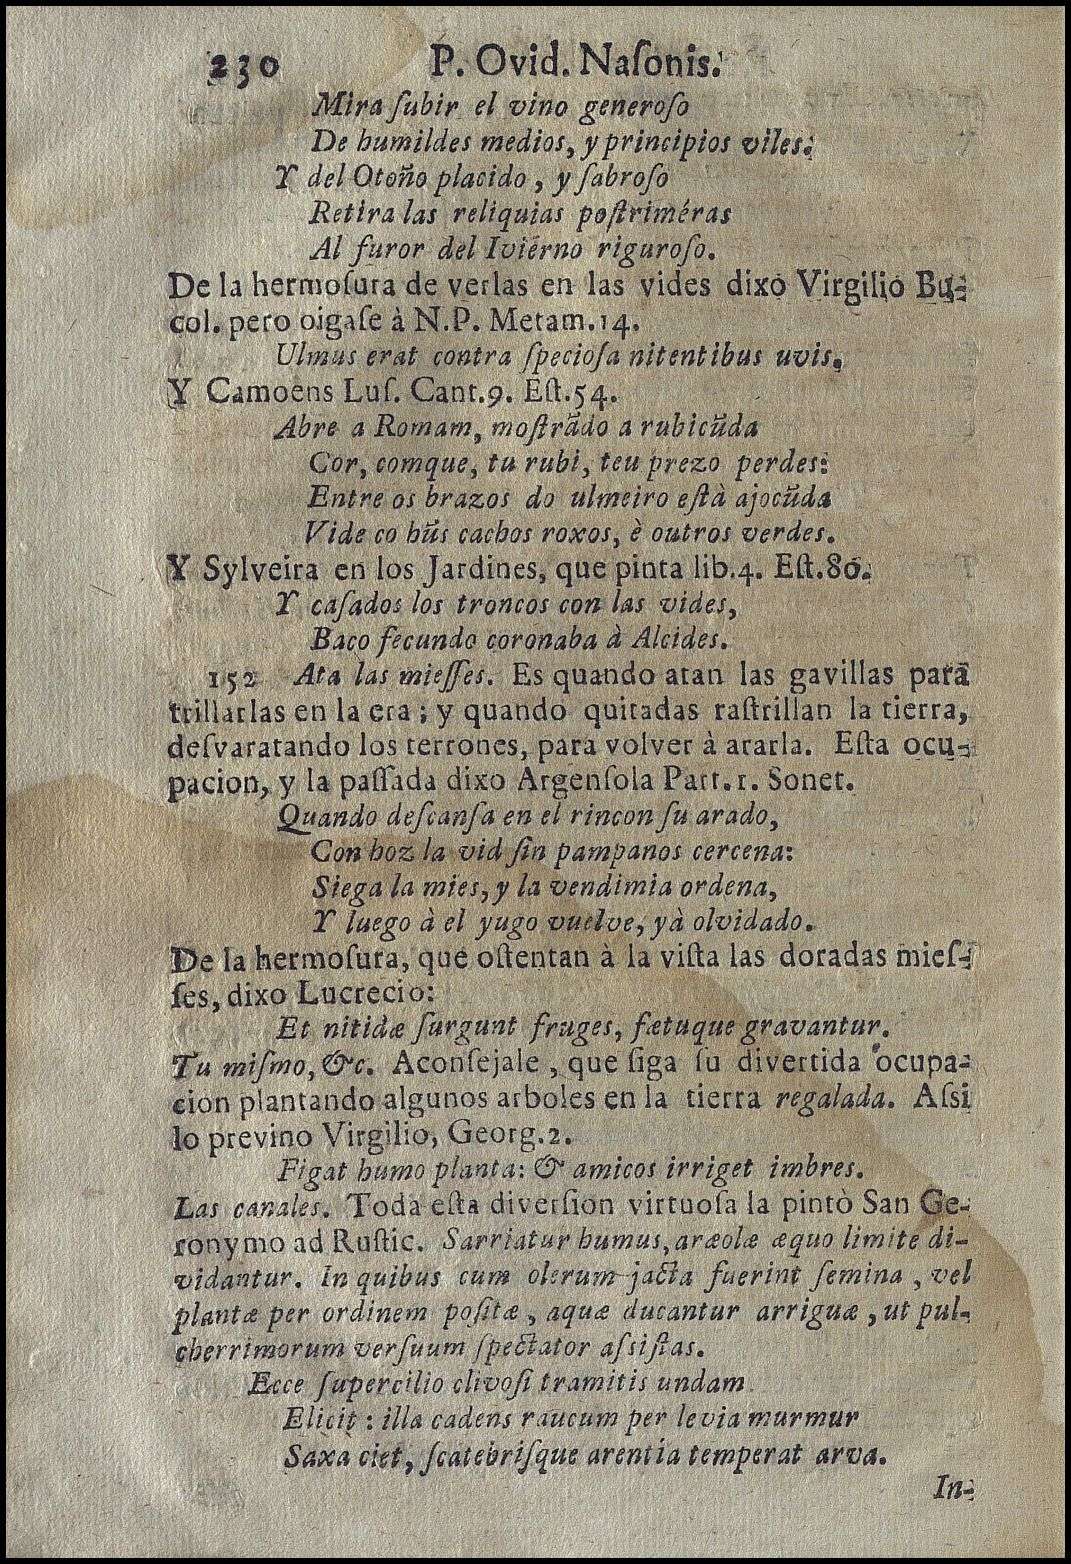 230 P. Ovid. Naſonis.
Mira ſubir el vino generoſo
De humildes medios, y principios viles:
Y del Otoño placido, y ſabroſo
Retira las reliquias poſtriméras
Al furor del Iviérno riguroſo.
De la hermoſura de verlas en las vides dixo Virgilio Bu-
col. pero oigaſe à N.P. Metam.14.
Ulmus erat contra ſpecioſa nitentibus uvis.
Y Camoens Luſ. Cant.9. Eſt.54.
Abre a Romam, moſtrãdo a rubicũda
Cor, comque, tu rubi, teu prezo perdes:
Entre os brazos do ulmeiro eſtà ajocũda
Vide co hũs cachos roxos, è outros verdes.
Y Sylveira en los Jardines, que pinta lib.4. Eſt.86.
Y caſados los troncos con las vides,
Baco fecundo coronaba à Alcides.
152 Ata las mieſſes. Es quando atan las gavillas para
trillarlas en la era; y quando quitadas raſtrillan la tierra,
deſvaratando los terrones, para volver à ararla. Eſta ocu-
pacion, y la paſſada dixo Argenſola Part.1. Sonet.
Quando deſcanſa en el rincon ſu arado,
Con hoz la vid ſin pampanos cercena:
Siega la mies, y la vendimia ordena,
Y luego à el yugo vuelve, yà olvidado.
De la hermoſura, que oſtentan à la viſta las doradas mieſ-
ſes, dixo Lucrecio:
Et nitidæ ſurgunt fruges, fætuque gravantur.
Tu miſmo, &c. Aconſejale, que ſiga ſu divertida ocupa-
cion plantando algunos arboles en la tierra regalada. Aſsi
lo previno Virgilio, Georg.2.
Figat humo planta: & amicos irriget imbres.
Las canales. Toda eſta diverſion virtuoſa la pintò San Ge-
ronymo ad Ruſtic. Sarriatur humus, aræolæ æquo limite di-
vidantur. In quibus cum olerum jacta fuerint ſemina, vel
plantæ per ordinem poſitæ, aquæ ducantur arriguæ, ut pul-
cherrimorum verſuum ſpectator aſsiſtas.
Ecce ſupercilio clivoſi tramitis undam
Elicit: illa cadens raucum per levia murmur
Saxa ciet, ſcatebriſque arentia temperat arva.
In-